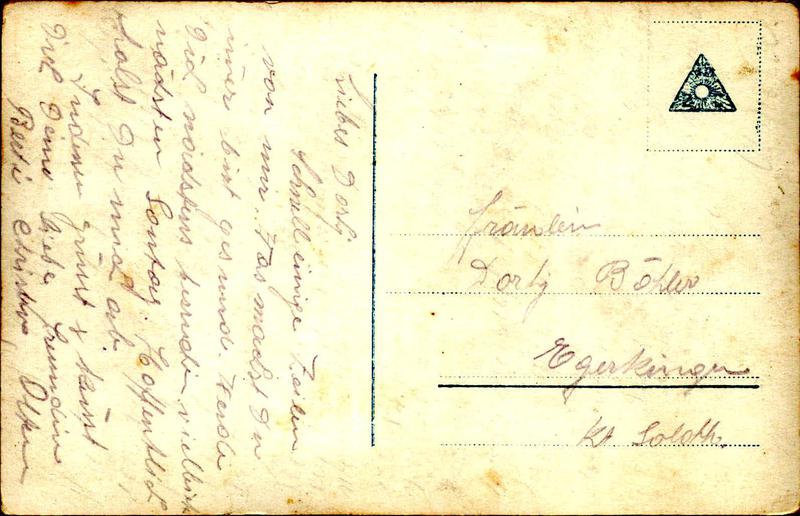 Liebes Dorly
Schnell einige Zeilen
von mir. Was machst Du
immer bist gesund. Werde
Dich nächstens besuchen vielleicht
nächsten Sontag. Hoffentlich
holst Du mich ab.
Indem grüsst & küsst
Dich Deine liebe Freundin
Olten
Fräulein
Dorly Böhler
Egerkingen
Kt Soloth.